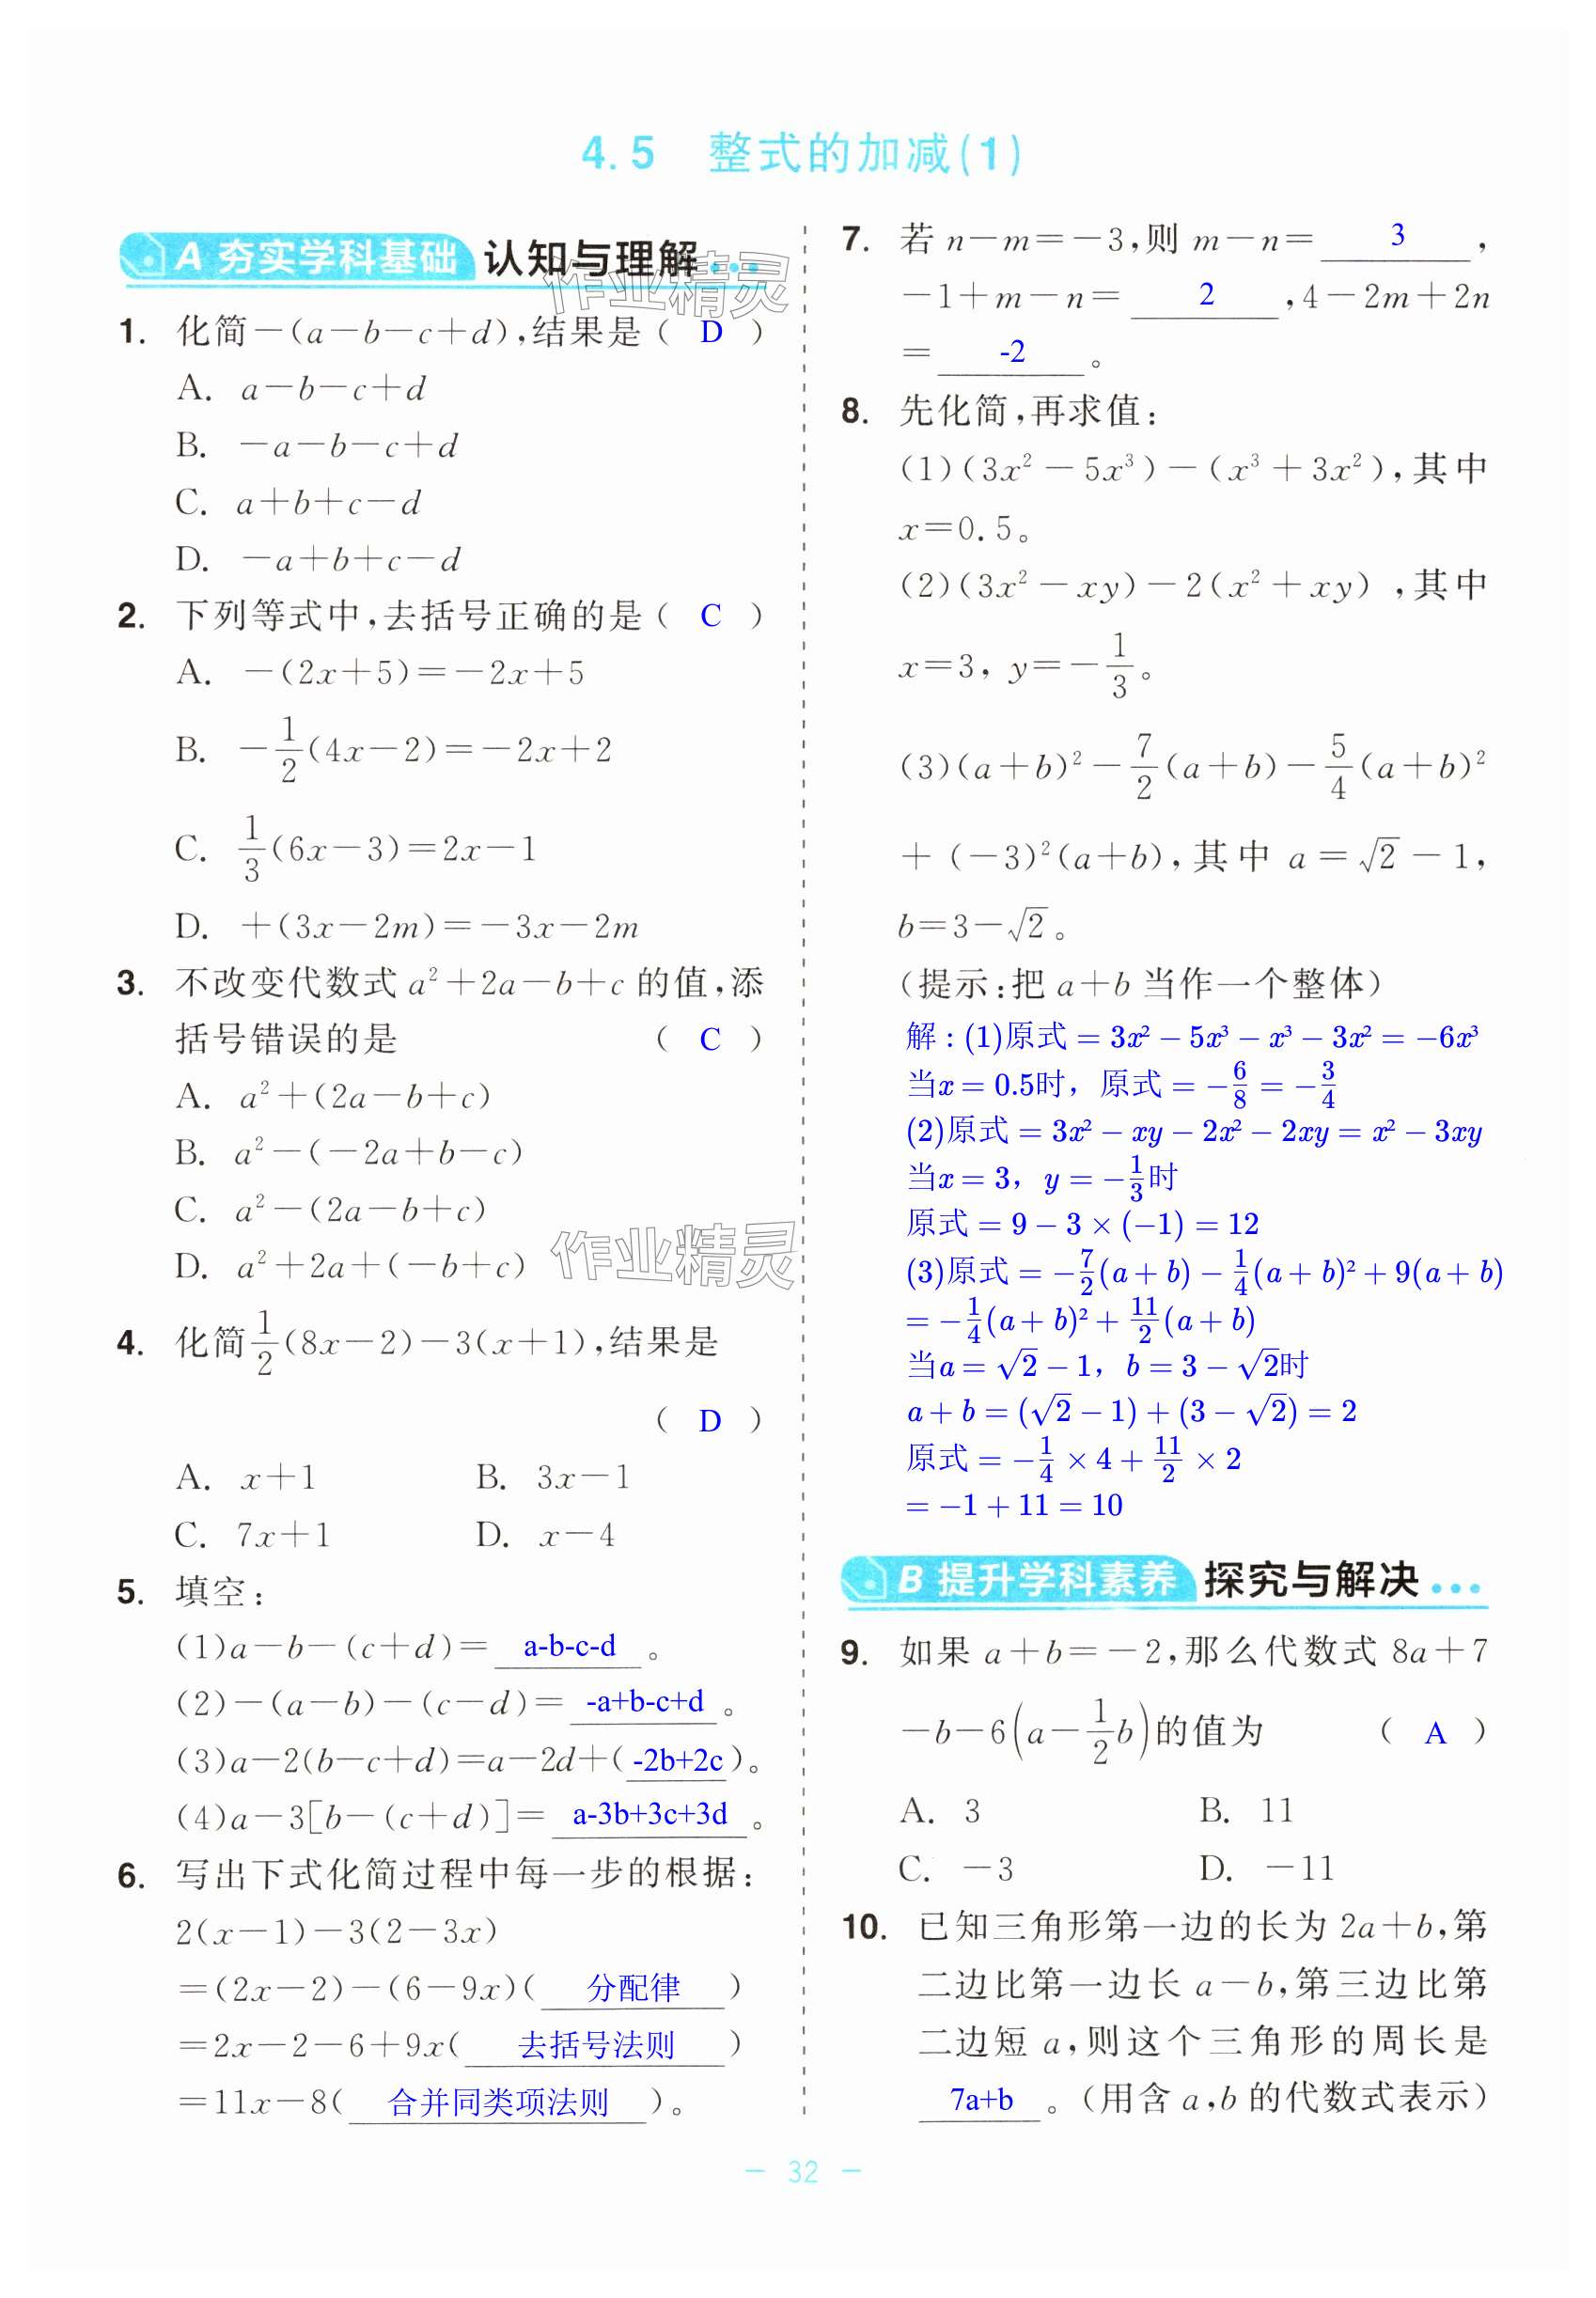 4.5 整式的加减(1)
A 夯实学科基础 认知与理解
作业精灵
1. 化简－(a－b－c＋d),结果是( D )
A. a－b－c＋d
B. －a－b－c＋d
C. a＋b＋c－d
D. －a＋b＋c－d
2. 下列等式中,去括号正确的是( C )
A. －(2x＋5)＝－2x＋5
B. －1/2(4x－2)＝－2x＋2
C. 1/3(6x－3)＝2x－1
D. ＋(3x－2m)＝－3x－2m
3. 不改变代数式 a²＋2a－b＋c 的值,添
括号错误的是 ( C )
A. a²＋(2a－b＋c)
B. a²－(－2a＋b－c)
C. a²－(2a－b＋c)
D. a²＋2a＋(－b＋c)
作业精灵
4. 化简1/2(8x－2)－3(x＋1),结果是
( D )
A. x＋1 B. 3x－1
C. 7x＋1 D. x－4
5. 填空:
(1)a－b－(c＋d)＝ a-b-c-d 。
(2)－(a－b)－(c－d)＝ -a+b-c+d 。
(3)a－2(b－c＋d)＝a－2d＋( -2b+2c )。
(4)a－3[b－(c＋d)]＝ a-3b+3c+3d 。
6. 写出下式化简过程中每一步的根据:
2(x－1)－3(2－3x)
＝(2x－2)－(6－9x)( 分配律 )
＝2x－2－6＋9x( 去括号法则 )
＝11x－8( 合并同类项法则 )。
7. 若 n－m＝－3,则 m－n＝ 3 ,
－1＋m－n＝ 2 ,4－2m＋2n
＝ -2 。
8. 先化简,再求值:
(1)(3x²－5x³)－(x³＋3x²),其中
x＝0.5。
(2)(3x²－xy)－2(x²＋xy),其中
x＝3, y＝－1/3。
(3)(a＋b)²－7/2(a＋b)－5/4(a＋b)²
＋(－3)²(a＋b),其中 a＝√2－1,
b＝3－√2。
(提示:把 a＋b 当作一个整体)
解:(1)原式 = 3x² − 5x³ − x³ − 3x² = −6x³
当x = 0.5时，原式 = −6/8 = −3/4
(2)原式 = 3x² − xy − 2x² − 2xy = x² − 3xy
当x = 3，y = −1/3时
原式 = 9 − 3 × (−1) = 12
(3)原式 = −7/2(a + b) − 1/4(a + b)² + 9(a + b)
= −1/4(a + b)² + 11/2(a + b)
当a = √2 − 1，b = 3 − √2时
a + b = (√2 − 1) + (3 − √2) = 2
原式 = −1/4 × 4 + 11/2 × 2
= −1 + 11 = 10
B 提升学科素养 探究与解决
9. 如果 a＋b＝－2,那么代数式 8a＋7
－b－6(a－1/2b)的值为 ( A )
A. 3 B. 11
C. －3 D. －11
10. 已知三角形第一边的长为 2a＋b,第
二边比第一边长 a－b,第三边比第
二边短 a,则这个三角形的周长是
7a+b 。(用含 a,b 的代数式表示)
－ 32 －